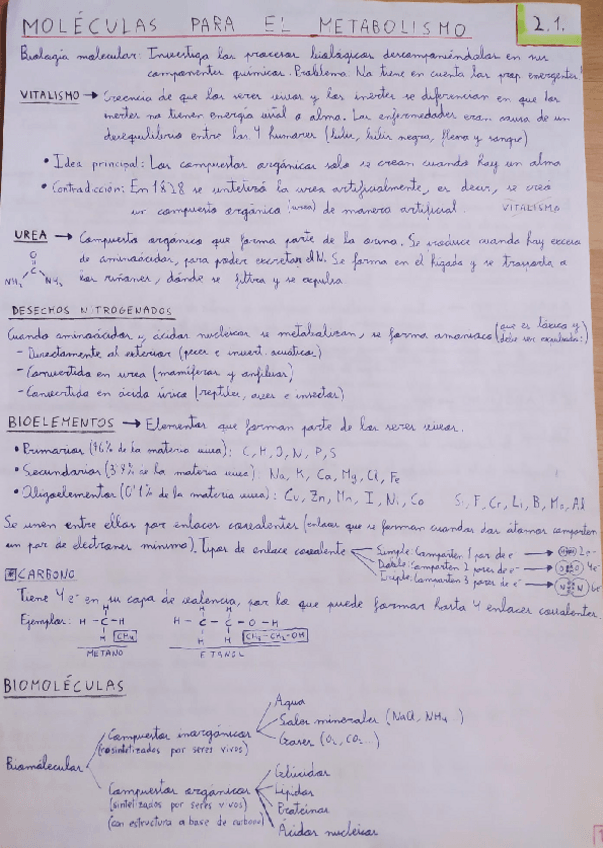 MOLÉCULAS PARA EL METABOLISMO 2.1.
Biología molecular: Investiga los procesos biológicos descomponiéndolos en sus
componentes químicos. Problema: No tiene en cuenta las prop. emergentes!
VITALISMO → Creencia de que los seres vivos y los inertes se diferencian en que los
inertes no tienen energía vital o alma. Las enfermedades eran causa de un
desequilibrio entre los 4 humores (bilis, bilis negra, flema y sangre)
• Idea principal: Los compuestos orgánicos solo se crean cuando hay un alma
• Contradicción: En 1828 se sintetizó la urea artificialmente, es decir, se creó
un compuesto orgánico (urea) de manera artificial. VITALISMO
UREA → Compuesto orgánico que forma parte de la orina. Se produce cuando hay exceso
de aminoácidos, para poder excretar el N. Se forma en el hígado y se trasporta a
los riñones, dónde se filtra y se expulsa.
O
C
NH₂ NH₂
DESECHOS NITROGENADOS
Cuando aminoácidos y ácidos nucleicos se metabolizan, se forma amoniaco (que es tóxico y debe ser excretados:)
- Directamente al exterior (peces e invert. acuáticos)
- Convertida en urea (mamíferos y anfibios)
- Convertida en ácido úrico (reptiles, aves e insectos)
BIOELEMENTOS → Elementos que forman parte de los seres vivos.
• Primarios (96% de la materia viva): C, H, O, N, P, S
• Secundarios (3'9% de la materia viva): Na, K, Ca, Mg, Cl, Fe
• Oligoelementos (0'1% de la materia viva): Cu, Zn, Mn, I, Ni, Co Si, F, Cr, Li, B, Mo, Al
Se unen entre ellos por enlaces covalentes (enlaces que se forman cuando dos átomos comparten
un par de electrones mínimo). Tipos de enlace covalente
Simple: Comparten 1 par de e⁻ → H H 2e⁻
Doble: Comparten 2 pares de e⁻ → O O 4e⁻
Triple: Comparten 3 pares de e⁻ → N N 6e⁻
CARBONO
Tiene 4 e⁻ en su capa de valencia, por lo que puede formar hasta 4 enlaces covalentes.
H H H
Ejemplos: H - C - H H - C - C - O - H
H CH₄ H H CH₃-CH₂-OH
METANO ETANOL
BIOMOLÉCULAS
Agua
Compuestos inorgánicos Sales minerales (NaCl, NH₄ )
(no sintetizados por seres vivos) Gases (O₂, CO₂...)
Biomoléculas
Compuestos orgánicos Glúcidos
(sintetizados por seres vivos) Lípidos
(con estructura a base de carbono) Proteínas
Ácidos nucleicos
1